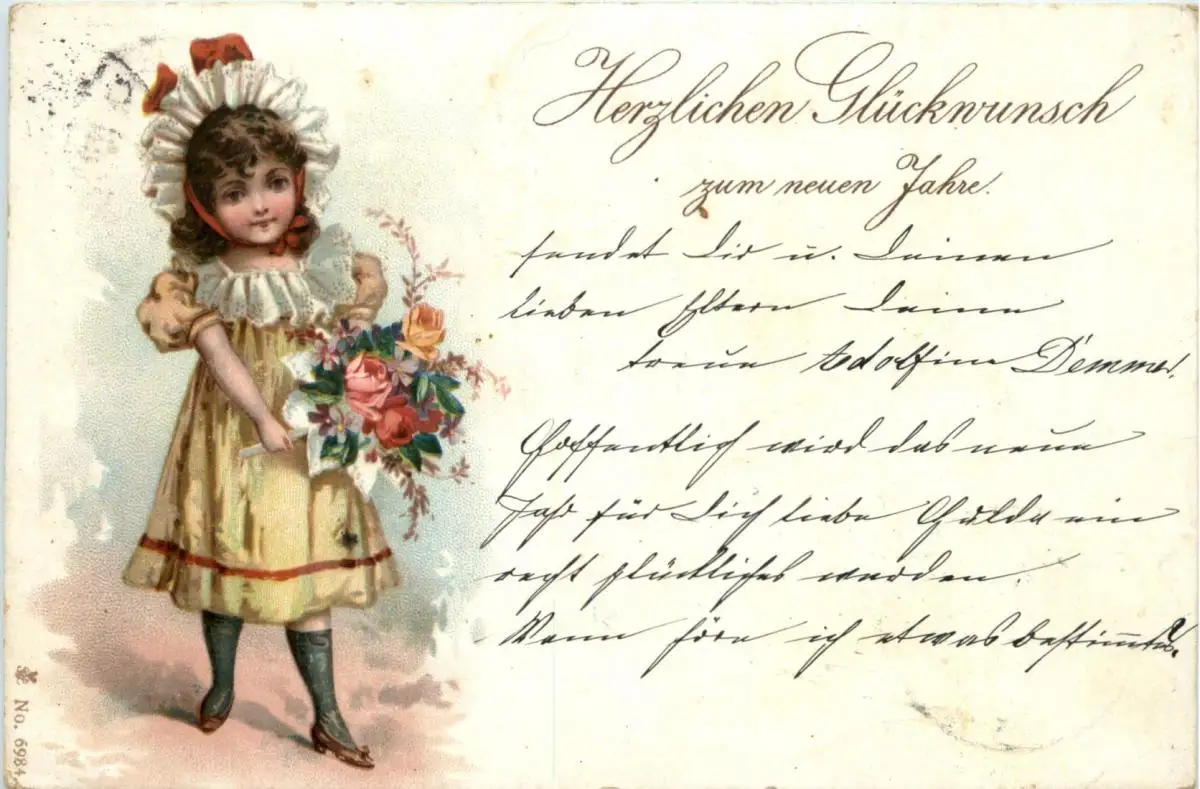 Herzlichen Glückwunsch
zum neuen Jahre.
sendet Dir u. Deinen
lieben Eltern Deine
treue Adolfine Demmer.
Hoffentlich wird das neue
Jahr für Dich liebe Hulda ein
recht glückliches werden.
Wann höre ich etwas bestimmtes?
No. 6984